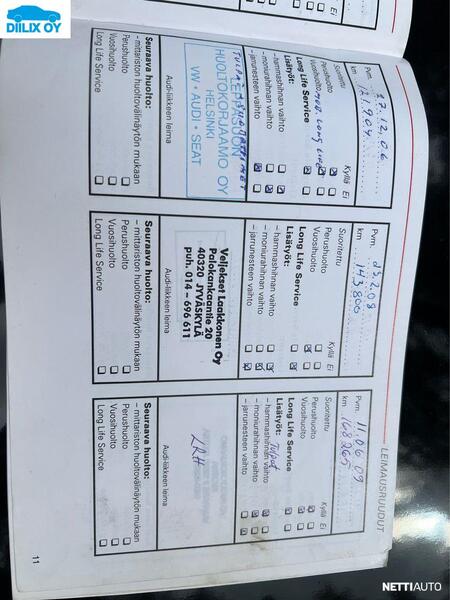 DIILIX OY
LEIMAUSRUUDUT
Pvm. 17.12.06
km 121.904
Suoritettu Kyllä Ei
Perushuolto
Vuosihuolto
Long Life Service
Lisätyöt:
- hammashihnan vaihto
- moniurahihnan vaihto
- jarrunesteen vaihto
HUOLTOKORJAAMO OY
HELSINKI
VW • AUDI • SEAT
Audi-liikkeen leima
Seuraava huolto:
- mittariston huoltovälinäytön mukaan
Perushuolto
Vuosihuolto
Long Life Service
Pvm. 25.2.08
km 143.800
Suoritettu Kyllä Ei
Perushuolto
Vuosihuolto
Long Life Service
Lisätyöt:
- hammashihnan vaihto
- moniurahihnan vaihto
- jarrunesteen vaihto
Veljekset Laakkonen Oy
Palokankaantie 20
40320 JYVÄSKYLÄ
puh. 014 - 696 611
Audi-liikkeen leima
Seuraava huolto:
- mittariston huoltovälinäytön mukaan
Perushuolto
Vuosihuolto
Long Life Service
Pvm. 11.06.09
km 168265
Suoritettu Kyllä Ei
Perushuolto
Vuosihuolto
Long Life Service
Lisätyöt: Tulpat
- hammashihnan vaihto
- moniurahihnan vaihto
- jarrunesteen vaihto
LRH
Audi-liikkeen leima
Seuraava huolto:
- mittariston huoltovälinäytön mukaan
Perushuolto
Vuosihuolto
Long Life Service
11
NETTIAUTO